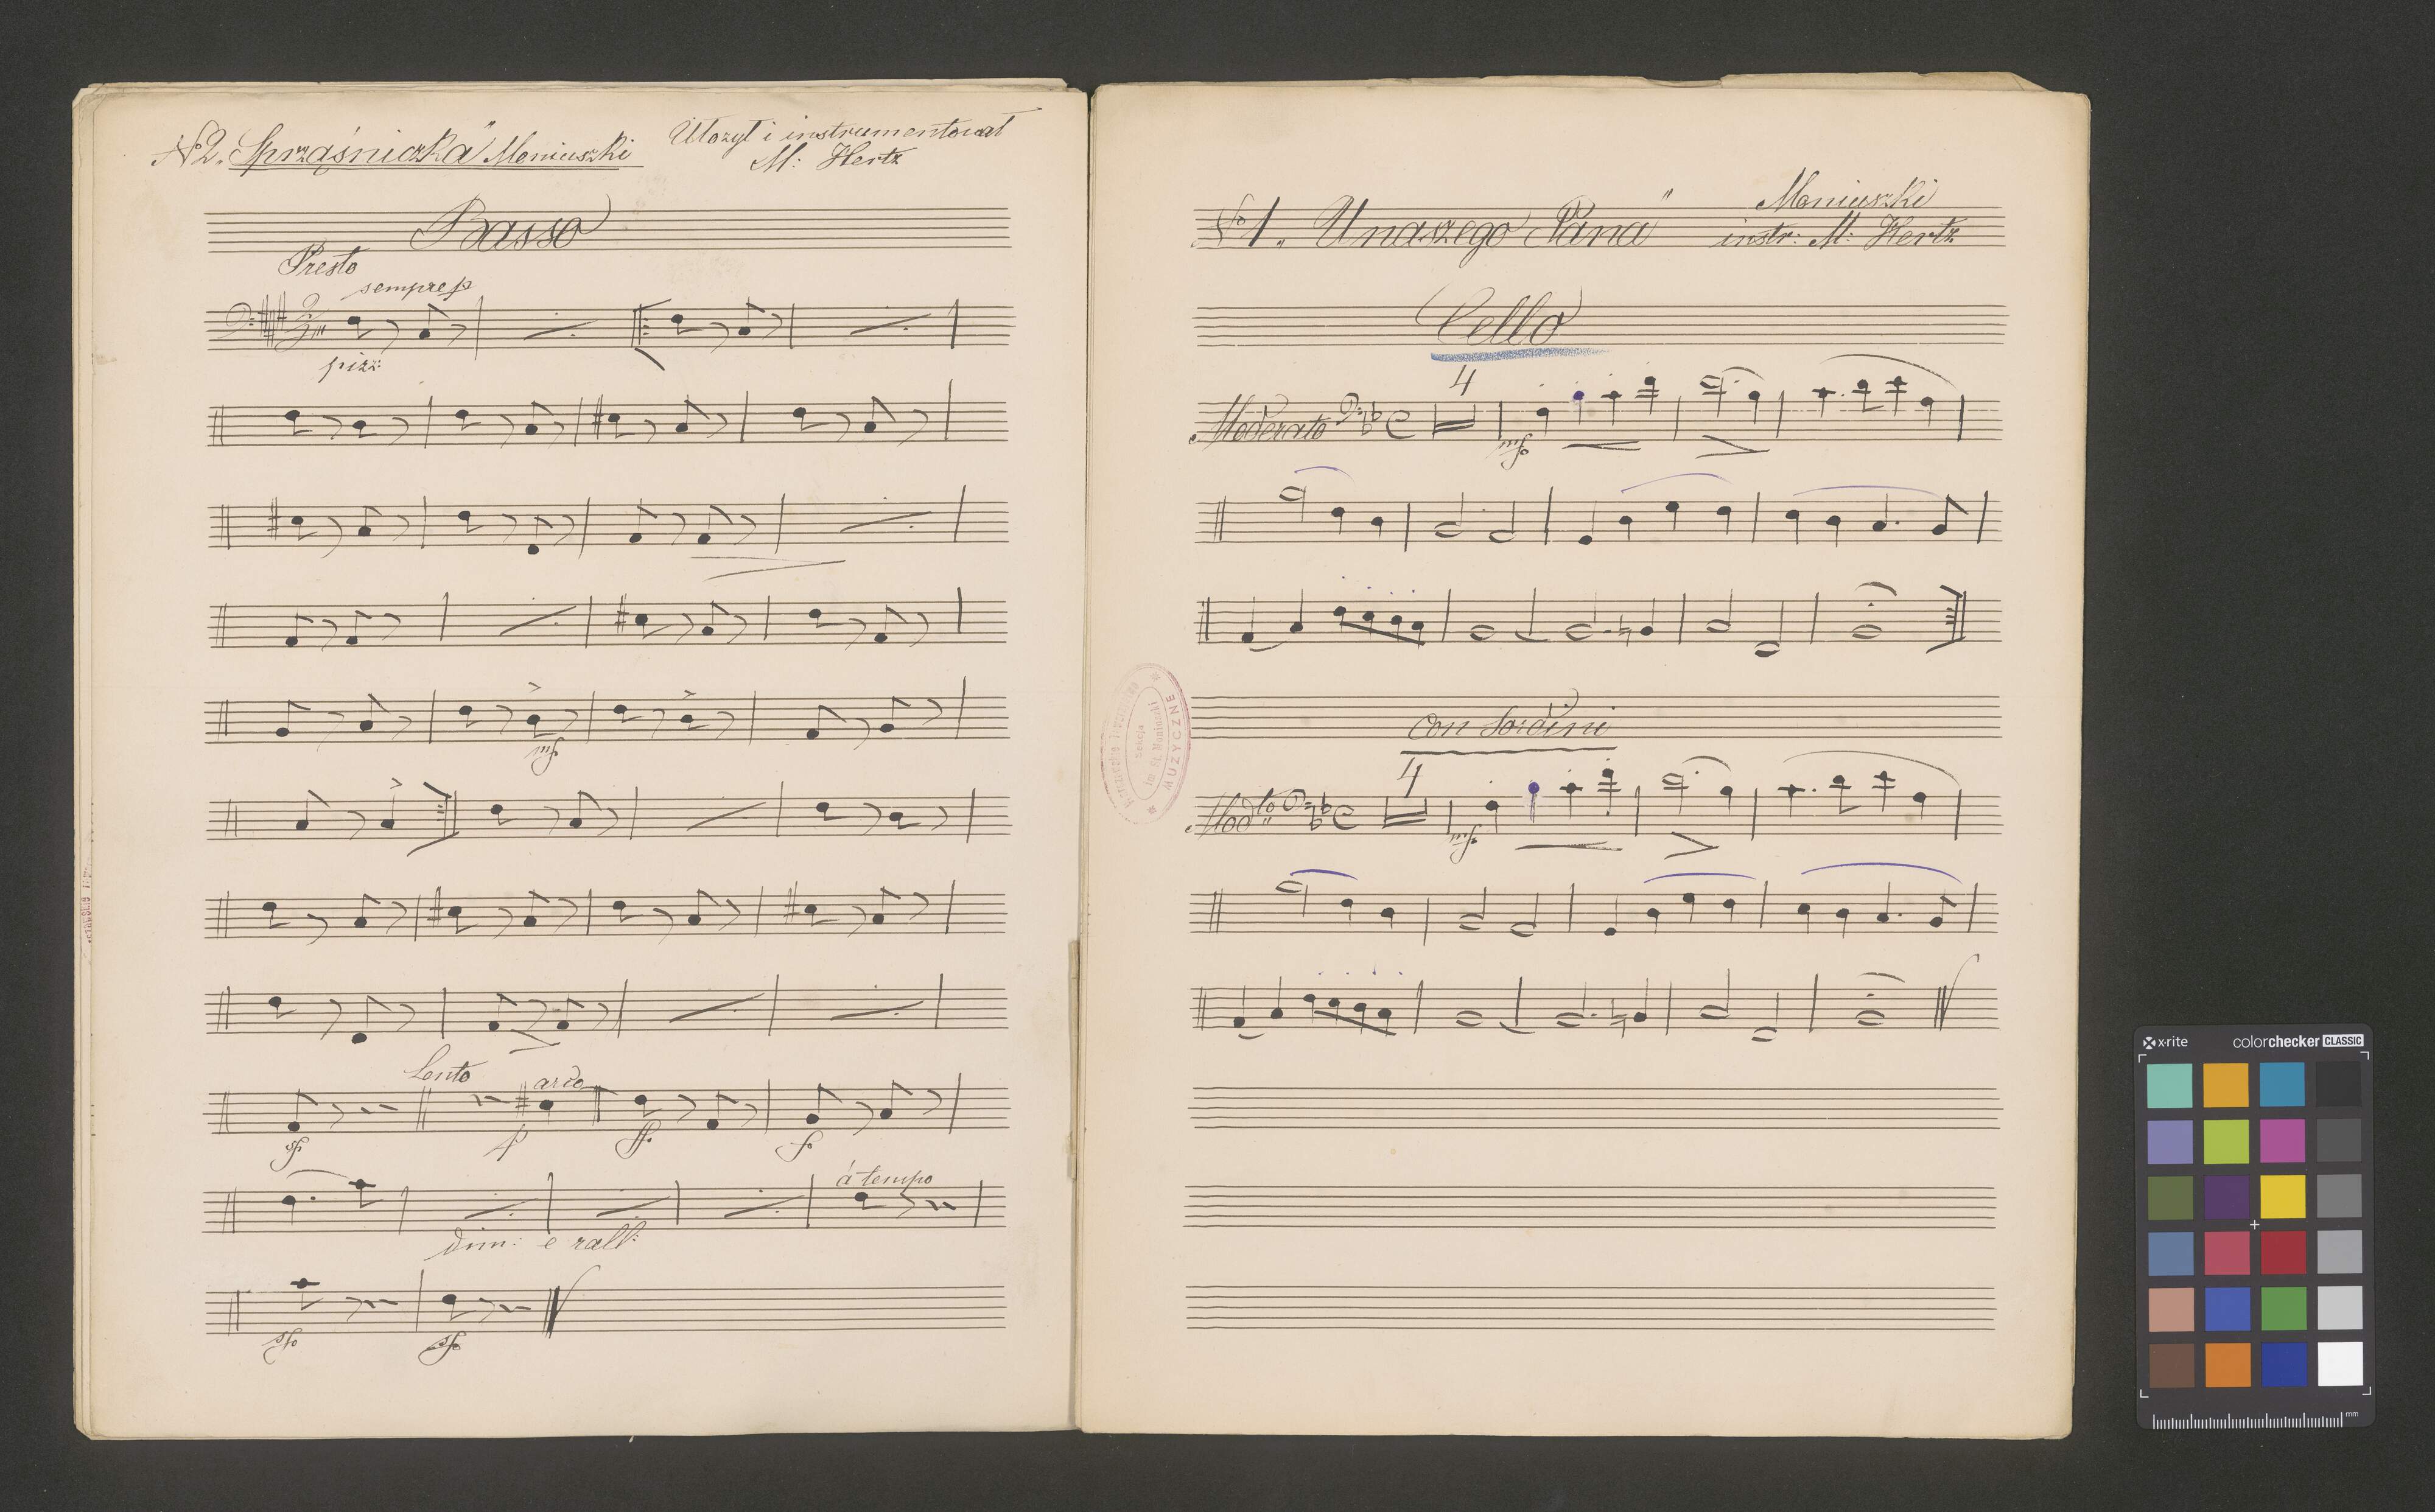 № 2. „Sprząśniczka" Moniuszki
Ułożył i instrumentował
M: Hertz
Basso
Presto
sempre p
pizz:
mf
Lento
arco
sf p ff f
à tempo
dim: e rall:
sf sf
№ 1. „U naszego Pana"
Moniuszki
instr: M: Hertz
Cello
4
Moderato
mf
Con Sordini
4
Modto
mf
Sekcja
im St. Moniuszki
MUZYCZNE
x-rite colorchecker CLASSIC
mm